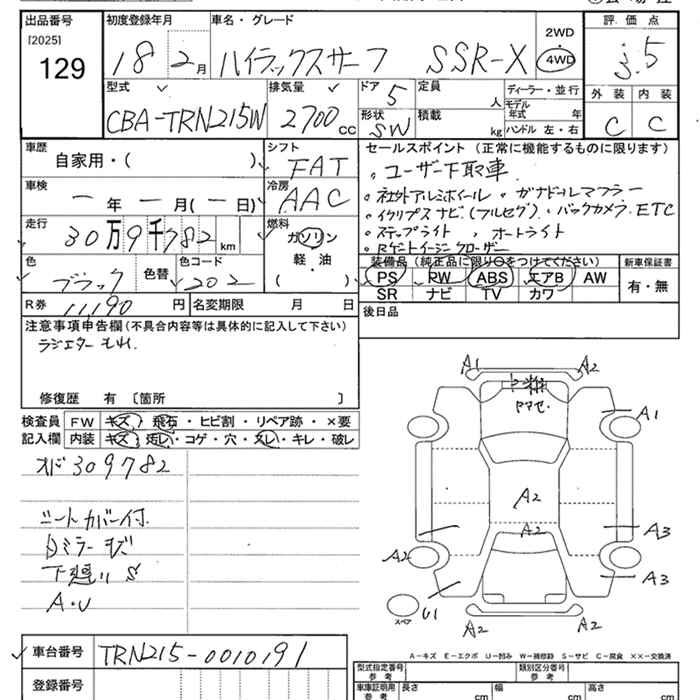 出品番号 初度登録年月 車名・グレード 評価点
[2025] 129 18 2月 ハイラックスサーフ SSR-X 2WD 4WD 3.5
型式 排気量 ドア 5 定員 人 ディーラー・並行 外装 内装
CBA-TRN215W 2700cc 形状 SW 積載 kg モデル年式 年 ハンドル 左・右 C C
車歴 自家用・( ) シフト FAT セールスポイント (正常に機能するものに限ります)
ユーザー下取車
車検 一年一月(一日) 冷房 AAC
・社外アルミホイール ・ガナドールマフラー
・イクリプスナビ(フルセグ)・バックカメラ.ETC
走行 30万9千782km 燃料 ガソリン 軽・油 ( )
・ステップライト ,オートライト
・Rゲートイージークローザー
色 ブラック 色替 色コード 202
装備品 (純正品に限り○をつけてください) 新車保証書
PS PW ABS エアB AW 有・無
SR ナビ TV カワ
R券 11,190円 名変期限 月 日
後日品
注意事項申告欄 (不具合内容等は具体的に記入して下さい)
ラジエターもれ.
修復歴 有 〔箇所 〕
検査員記入欄 FW キズ・飛石・ヒビ割・リペア跡・×要
内装 キズ・汚レ・コゲ・穴・スレ・キレ・破レ
オド309782
シートカバー付.
Dミラーキズ
下廻りS
A・U
A1 A2
ヤマセ.
A1
A2
A2
A3
A2
A3
スペア U1
A2 A2
A-キズ E-エクボ U-凹み W-補修跡 S-サビ C-腐食 XX-交換済
車台番号 TRN215-0010191
登録番号
型式指定番号 参考 類別区分番号 参考
車庫証明用 参考 長さ cm 幅 cm 高さ cm